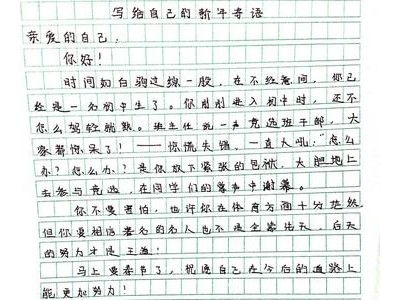 写给自己的新年寄语
亲爱的自己，
你好！
时间如白驹过隙一般，在不经意间，你已
经是一名初中生了。你刚刚进入初中时，还不
怎么驾轻就熟。班主任说一声竞选班干部，大
家都惊呆了！——你慌失错，一直大吼：“怎么
办？怎么办？是你放下紧张的包袱，大胆地上
去参与竞选，在同学们的掌声中谢幕。
你不要害怕，也许你在体育方面十分茫然
但你要相信著名的名人也不是全靠先天，后天
的努力才是王道！
马上要春节了，祝愿自己在今后的道路上
能更加努力！